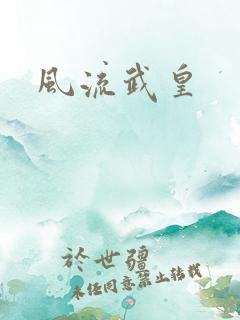 風流武皇
於世疆
未經同意禁止轉載